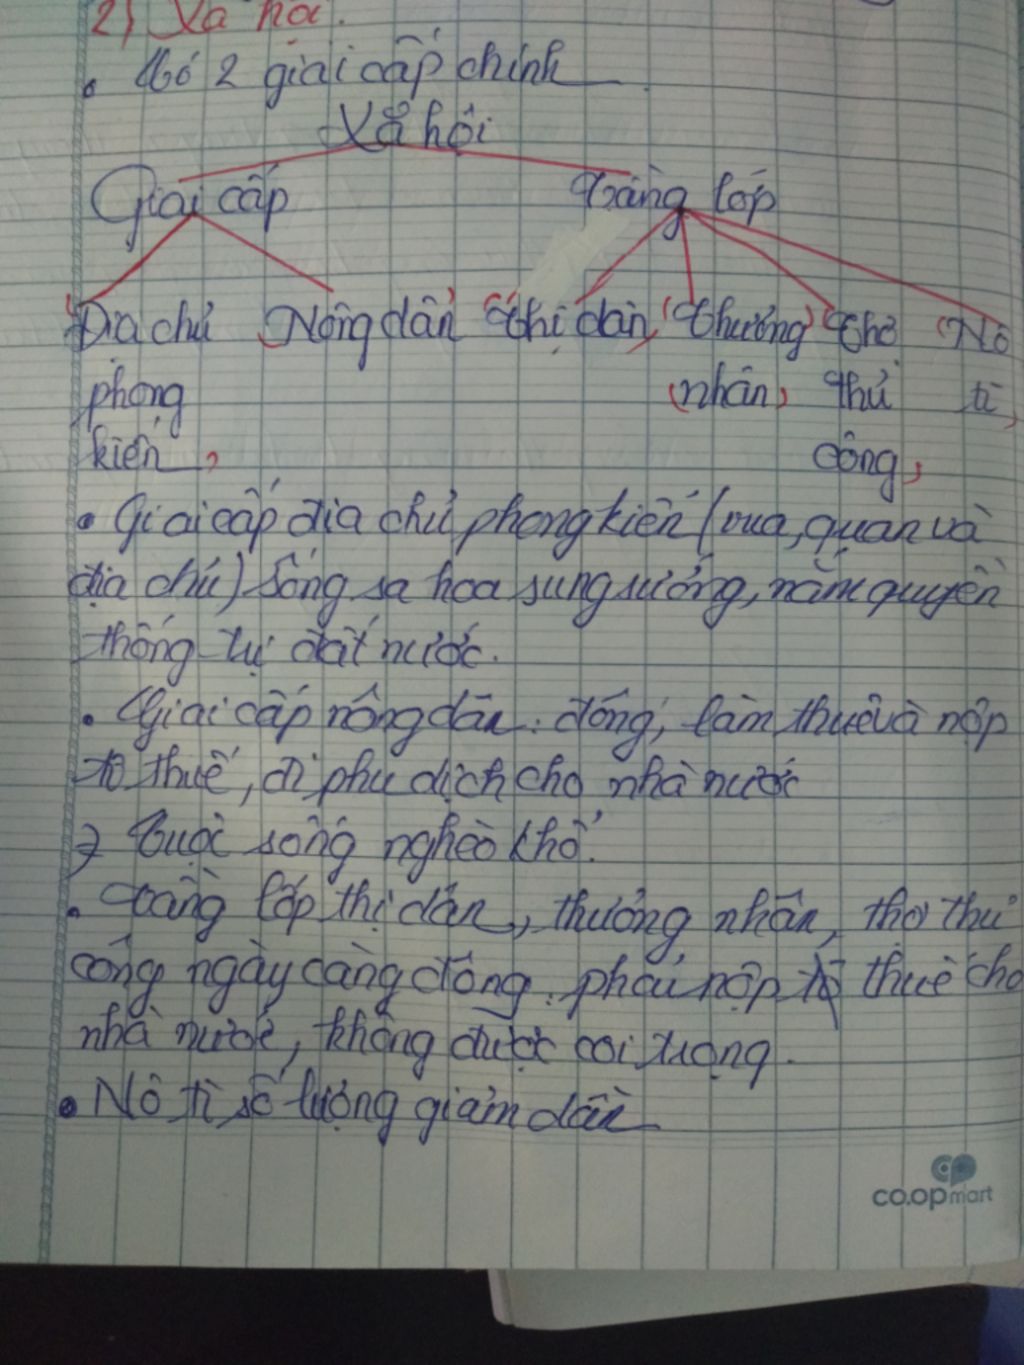 2) Xã hội.
• Có 2 giai cấp chính
Xã hội
Giai cấp Tầng lớp
Địa chủ Nông dân Thị dân, Thương Thợ Nô
phong nhân thủ tì
kiến công,
• Giai cấp địa chủ phong kiến (vua, quan và
địa chủ) sống sa hoa sung sướng, nắm quyền
thống trị đất nước.
• Giai cấp nông dân: đông, làm thuê và nộp
tô thuế, đi phu dịch cho nhà nước
→ Cuộc sống nghèo khổ.
• Tầng lớp thị dân, thương nhân, thợ thủ
công ngày càng đông, phải nộp thuế cho
nhà nước, không được coi trọng.
• Nô tì số lượng giảm dần
co.opmart